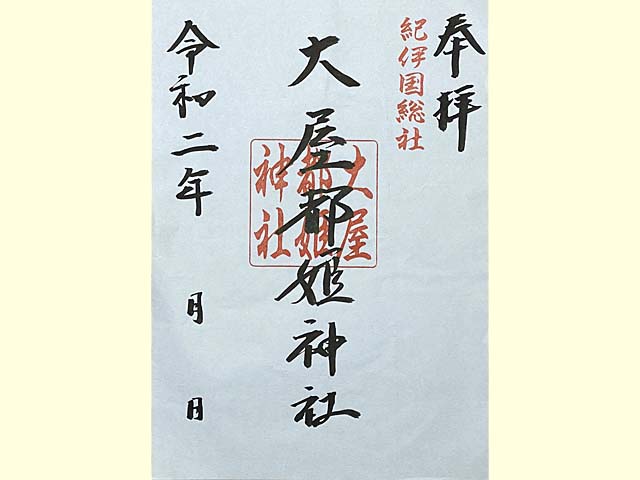 奉拝
紀伊国総社
大屋都姫神社
大屋
都姫
神社
令和二年 月 日